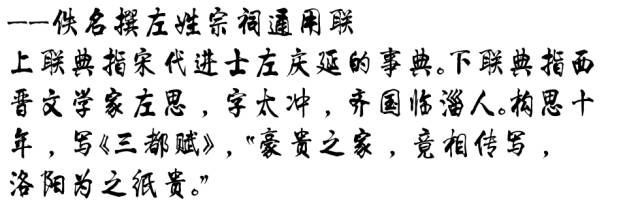 ——佚名撰左姓宗祠通用联
上联典指宋代进士左庆延的事典。下联典指西
晋文学家左思，字太冲，齐国临淄人。构思十
年，写《三都赋》，“豪贵之家，竟相传写，
洛阳为之纸贵。”